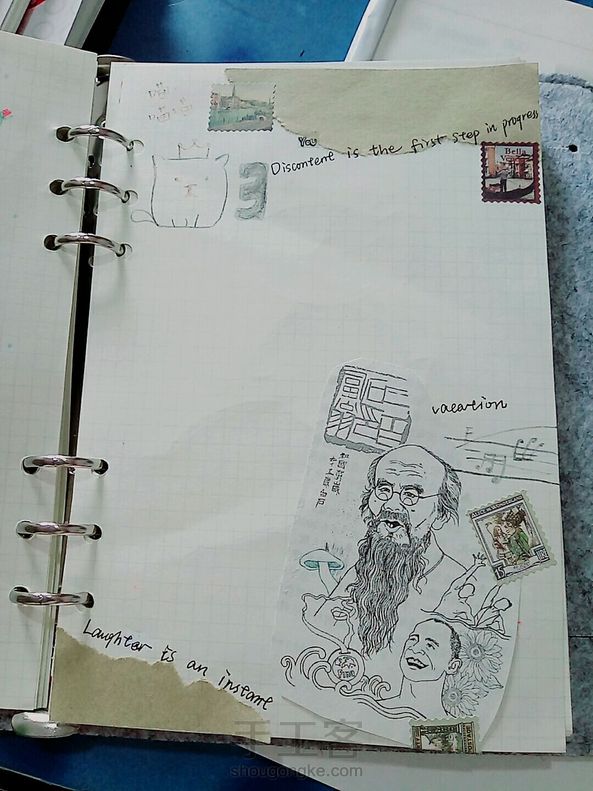 喵
喵喵
You
Discontent is the first step in progress
Bella
3
vacation
Laughter is an instant
手工客
shougongke.com